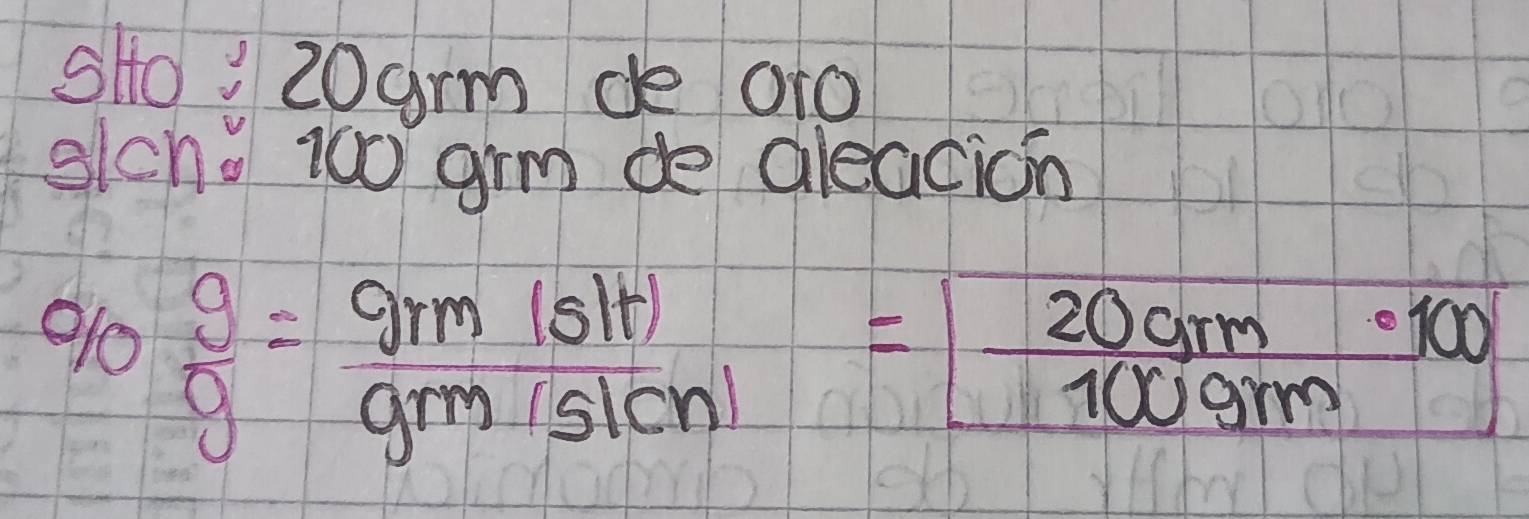 slto: 20grm de oro
slcn: 100 grm de aleación
% g/g = grm (slt) / grm (slcn) = 20grm / 100grm • 100